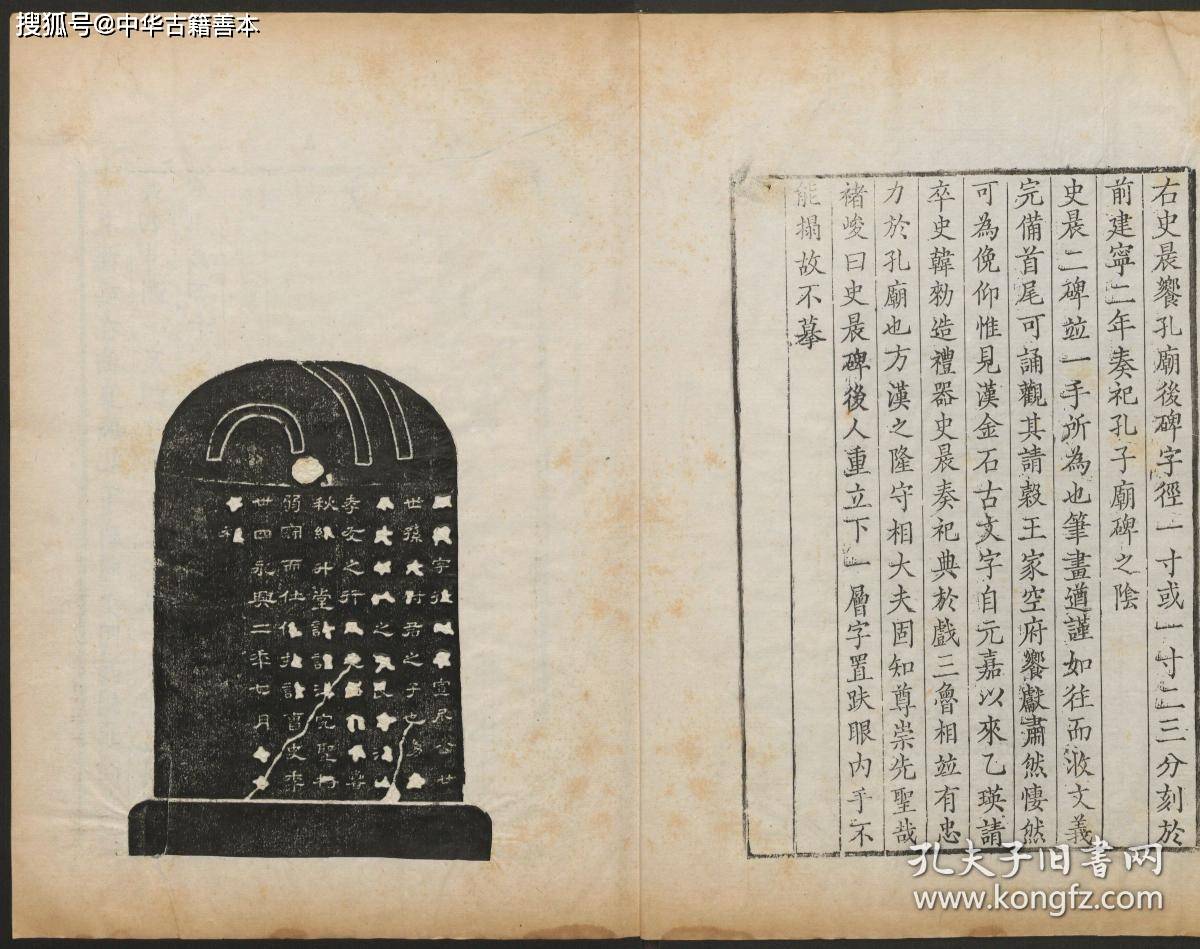 搜狐号@中华古籍善本
右史晨饗孔廟後碑字徑一寸或一寸二三分刻於
前建寧二年奏祀孔子廟碑之陰
史晨二碑竝一手所為也筆畫遒謹如往而收文義
完備首尾可誦觀其請穀王家空府饗獻肅然悽然
可為俛仰惟見漢金石古文字自元嘉以來乙瑛請
卒史韓勑造禮器史晨奏祀典於戲三魯相竝有忠
力於孔廟也方漢之隆守相大夫固知尊崇先聖哉
褚峻曰史晨碑後人重立下一層字置趺眼內手不
能搨故不摹
字 宣尼公廿
世孫 君之子也
之
孝友之行
秋 升堂
而仕 史季
廿四永興二年七月
孔夫子旧书网
www.kongfz.com